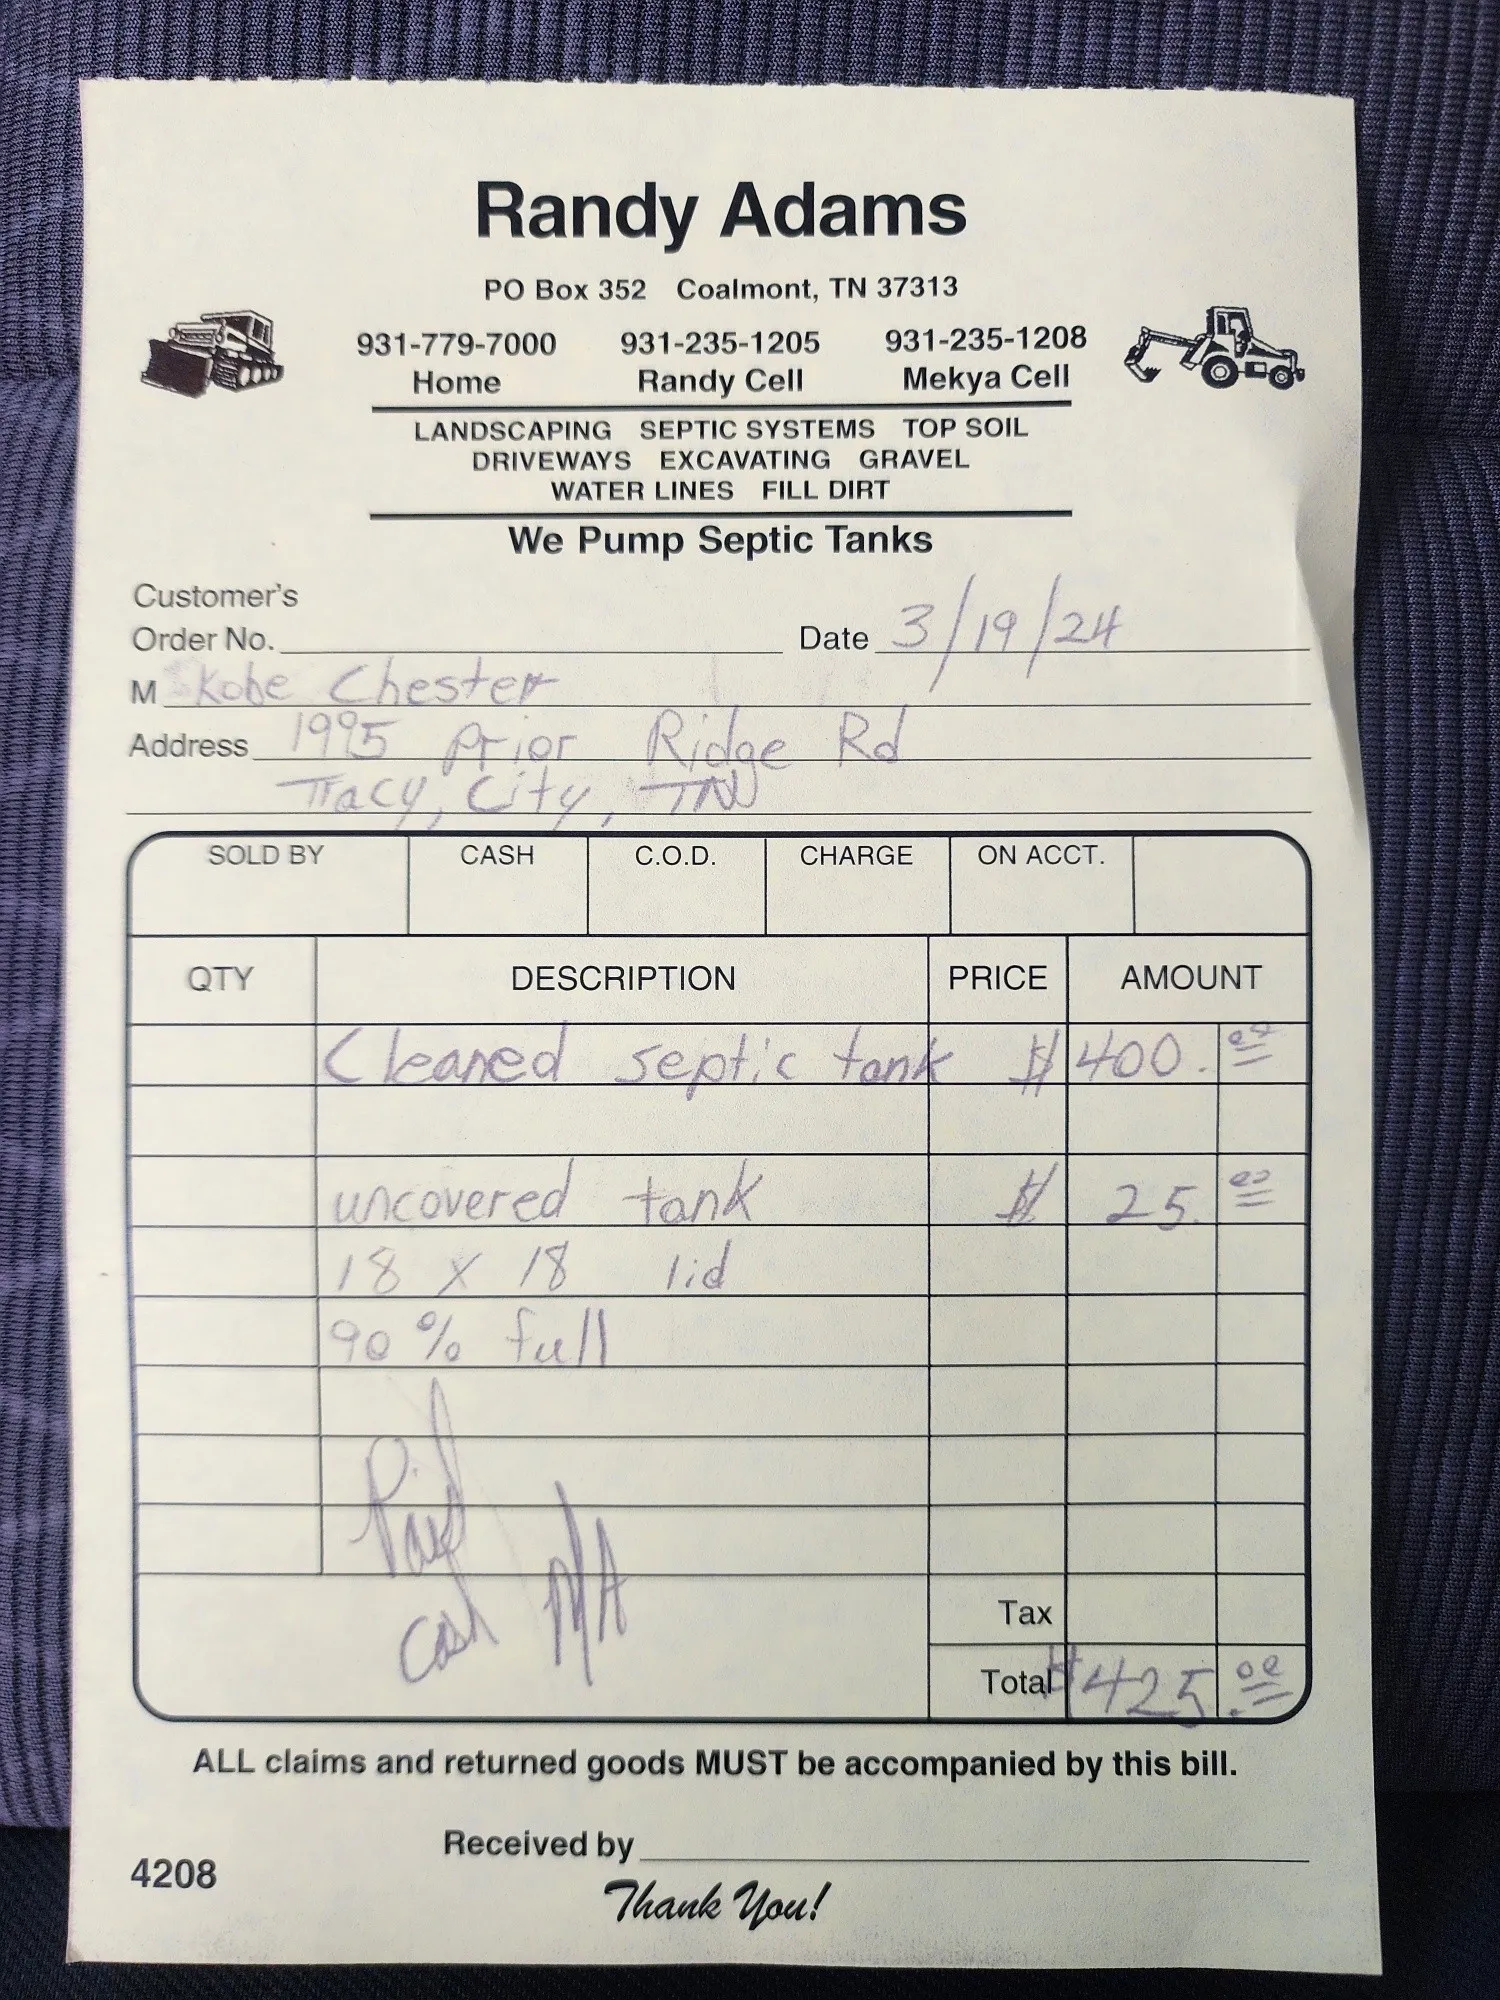 Randy Adams
PO Box 352 Coalmont, TN 37313
931-779-7000 931-235-1205 931-235-1208
Home Randy Cell Mekya Cell
LANDSCAPING SEPTIC SYSTEMS TOP SOIL
DRIVEWAYS EXCAVATING GRAVEL
WATER LINES FILL DIRT
We Pump Septic Tanks
Customer's
Order No. Date 3/19/24
M Kobe Chester
Address 1995 Prior Ridge Rd
Tracy, City, TN
SOLD BY CASH C.O.D. CHARGE ON ACCT.
QTY DESCRIPTION PRICE AMOUNT
Cleaned septic tank $ 400.00
uncovered tank $ 25.00
18 x 18 lid
90% full
Paid
Cash
Tax
Total $425.00
ALL claims and returned goods MUST be accompanied by this bill.
Received by
4208
Thank You!